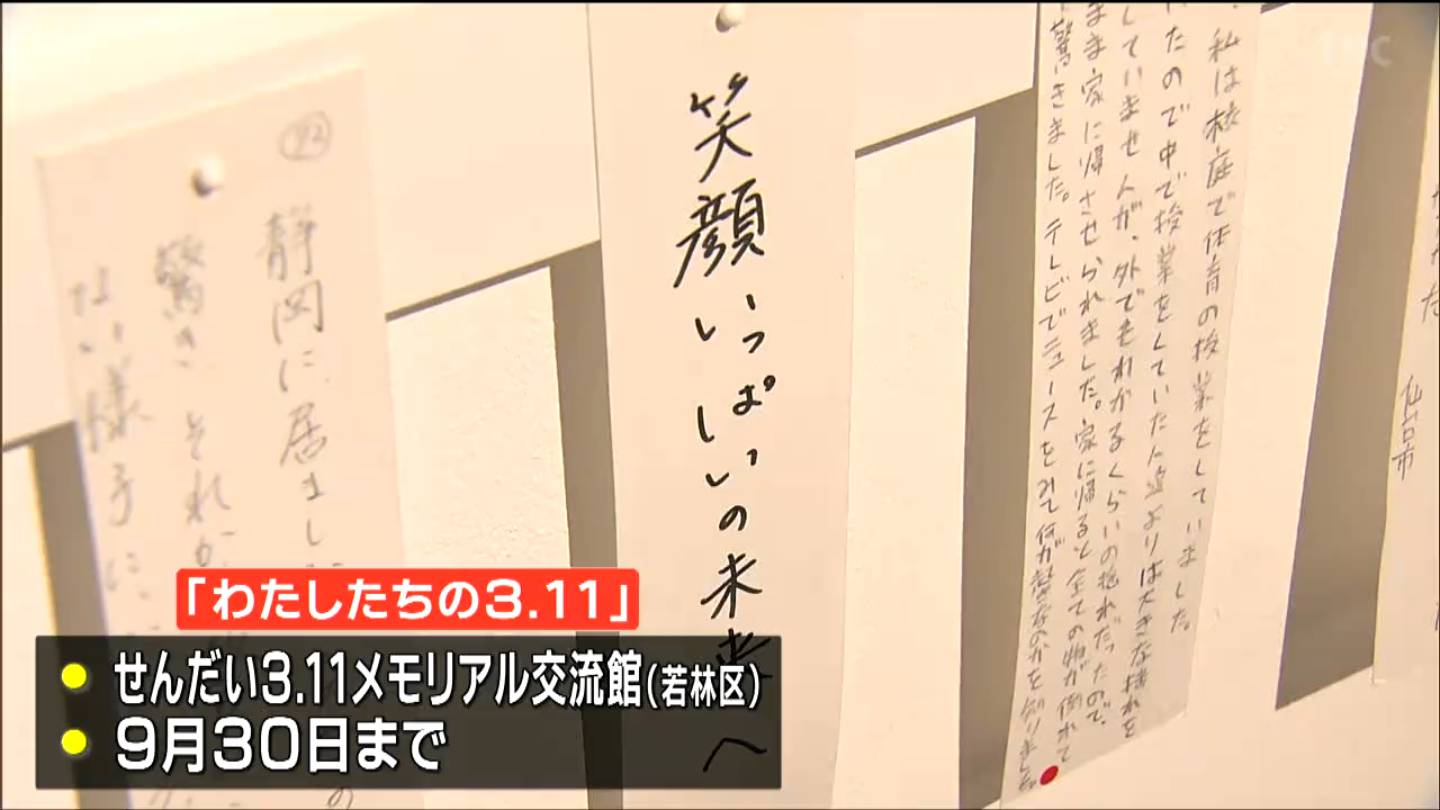 私は校庭で体育の授業をしていました。
たので中で授業をしていた人達よりは大きな揺れを
していませんが、外でもわかるくらいの揺れだったので、
まま家に帰させられました。家に帰ると全ての物が倒れて
驚きました。テレビでニュースをみて何が起きたのかを知りました
仙台市
笑顔いっぱい
いっぱいの未来へ
㉓
静岡に居まし
驚き それが
ない様子に
「わたしたちの3.11」
せんだい3.11メモリアル交流館(若林区)
9月30日まで